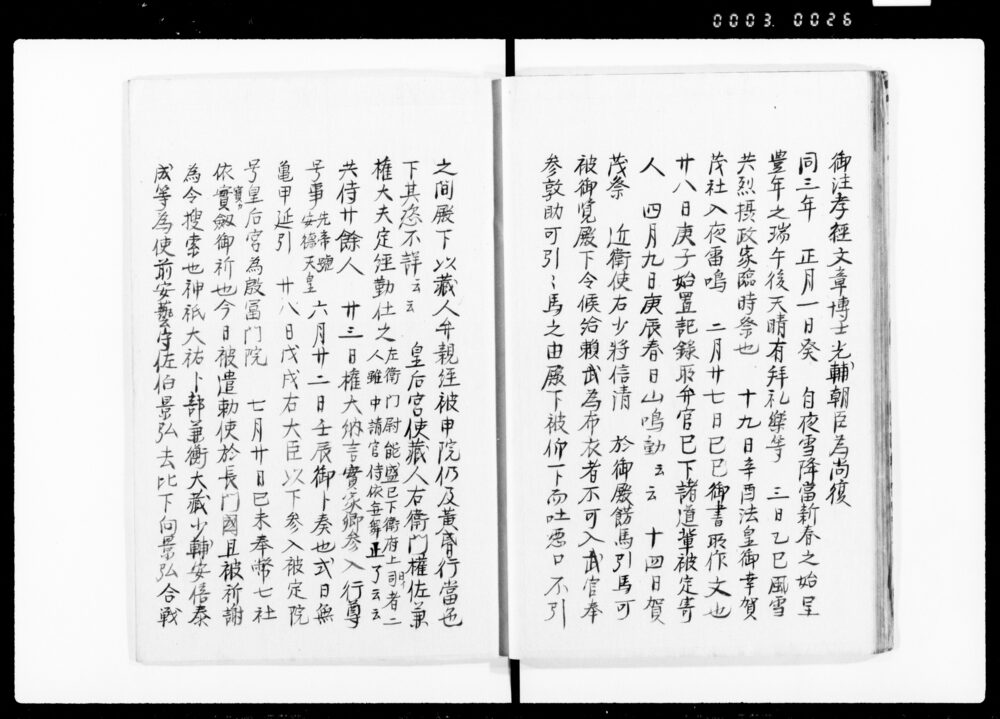 0003 0026
御注孝経文章博士光輔朝臣為尚復
同三年 正月一日癸 自夜雪降當新春之始呈
豊年之瑞午後天晴有拝礼樂等 三日乙巳風雪
共烈摂政家臨時祭也 十九日辛酉法皇御幸賀
茂社入夜雷鳴 二月廿七日己巳御書所作文也
廿八日庚子始置記録所弁官已下諸道輩被定寄
人 四月九日庚辰春日山鳴動云云 十四日賀
茂祭 近衛使右少将信清 於御殿餝馬引馬可
被御覧殿下令候給頼武為布衣者不可入武官奉
参敦助可引〻馬之由殿下被仰下而吐悪口不引
之间殿下以蔵人弁親経被申院仍及黄昏行當色
下其恐不詳云云 皇后宮使蔵人右衛門権佐兼
権大夫定経勤仕之左衛門尉能盛已下衛府上司者二
人雖申請官侍依無舞正了云云
共侍廿餘人 廿三日権大納言實家卿参入行尊
号事先帝號安徳天皇 六月廿二日壬辰御卜奏也式日無
亀甲延引 廿八日戊戌右大臣以下参入被定院
号皇后宮為殷冨門院 七月廿日己未奉幣七社
依寳劔御祈也今日被遣勅使於長門國且被祈謝
為令捜索也神祇大祐卜部兼衡大蔵少輔安倍泰
成等為使前安藝守佐伯景弘去比下向景弘合戦